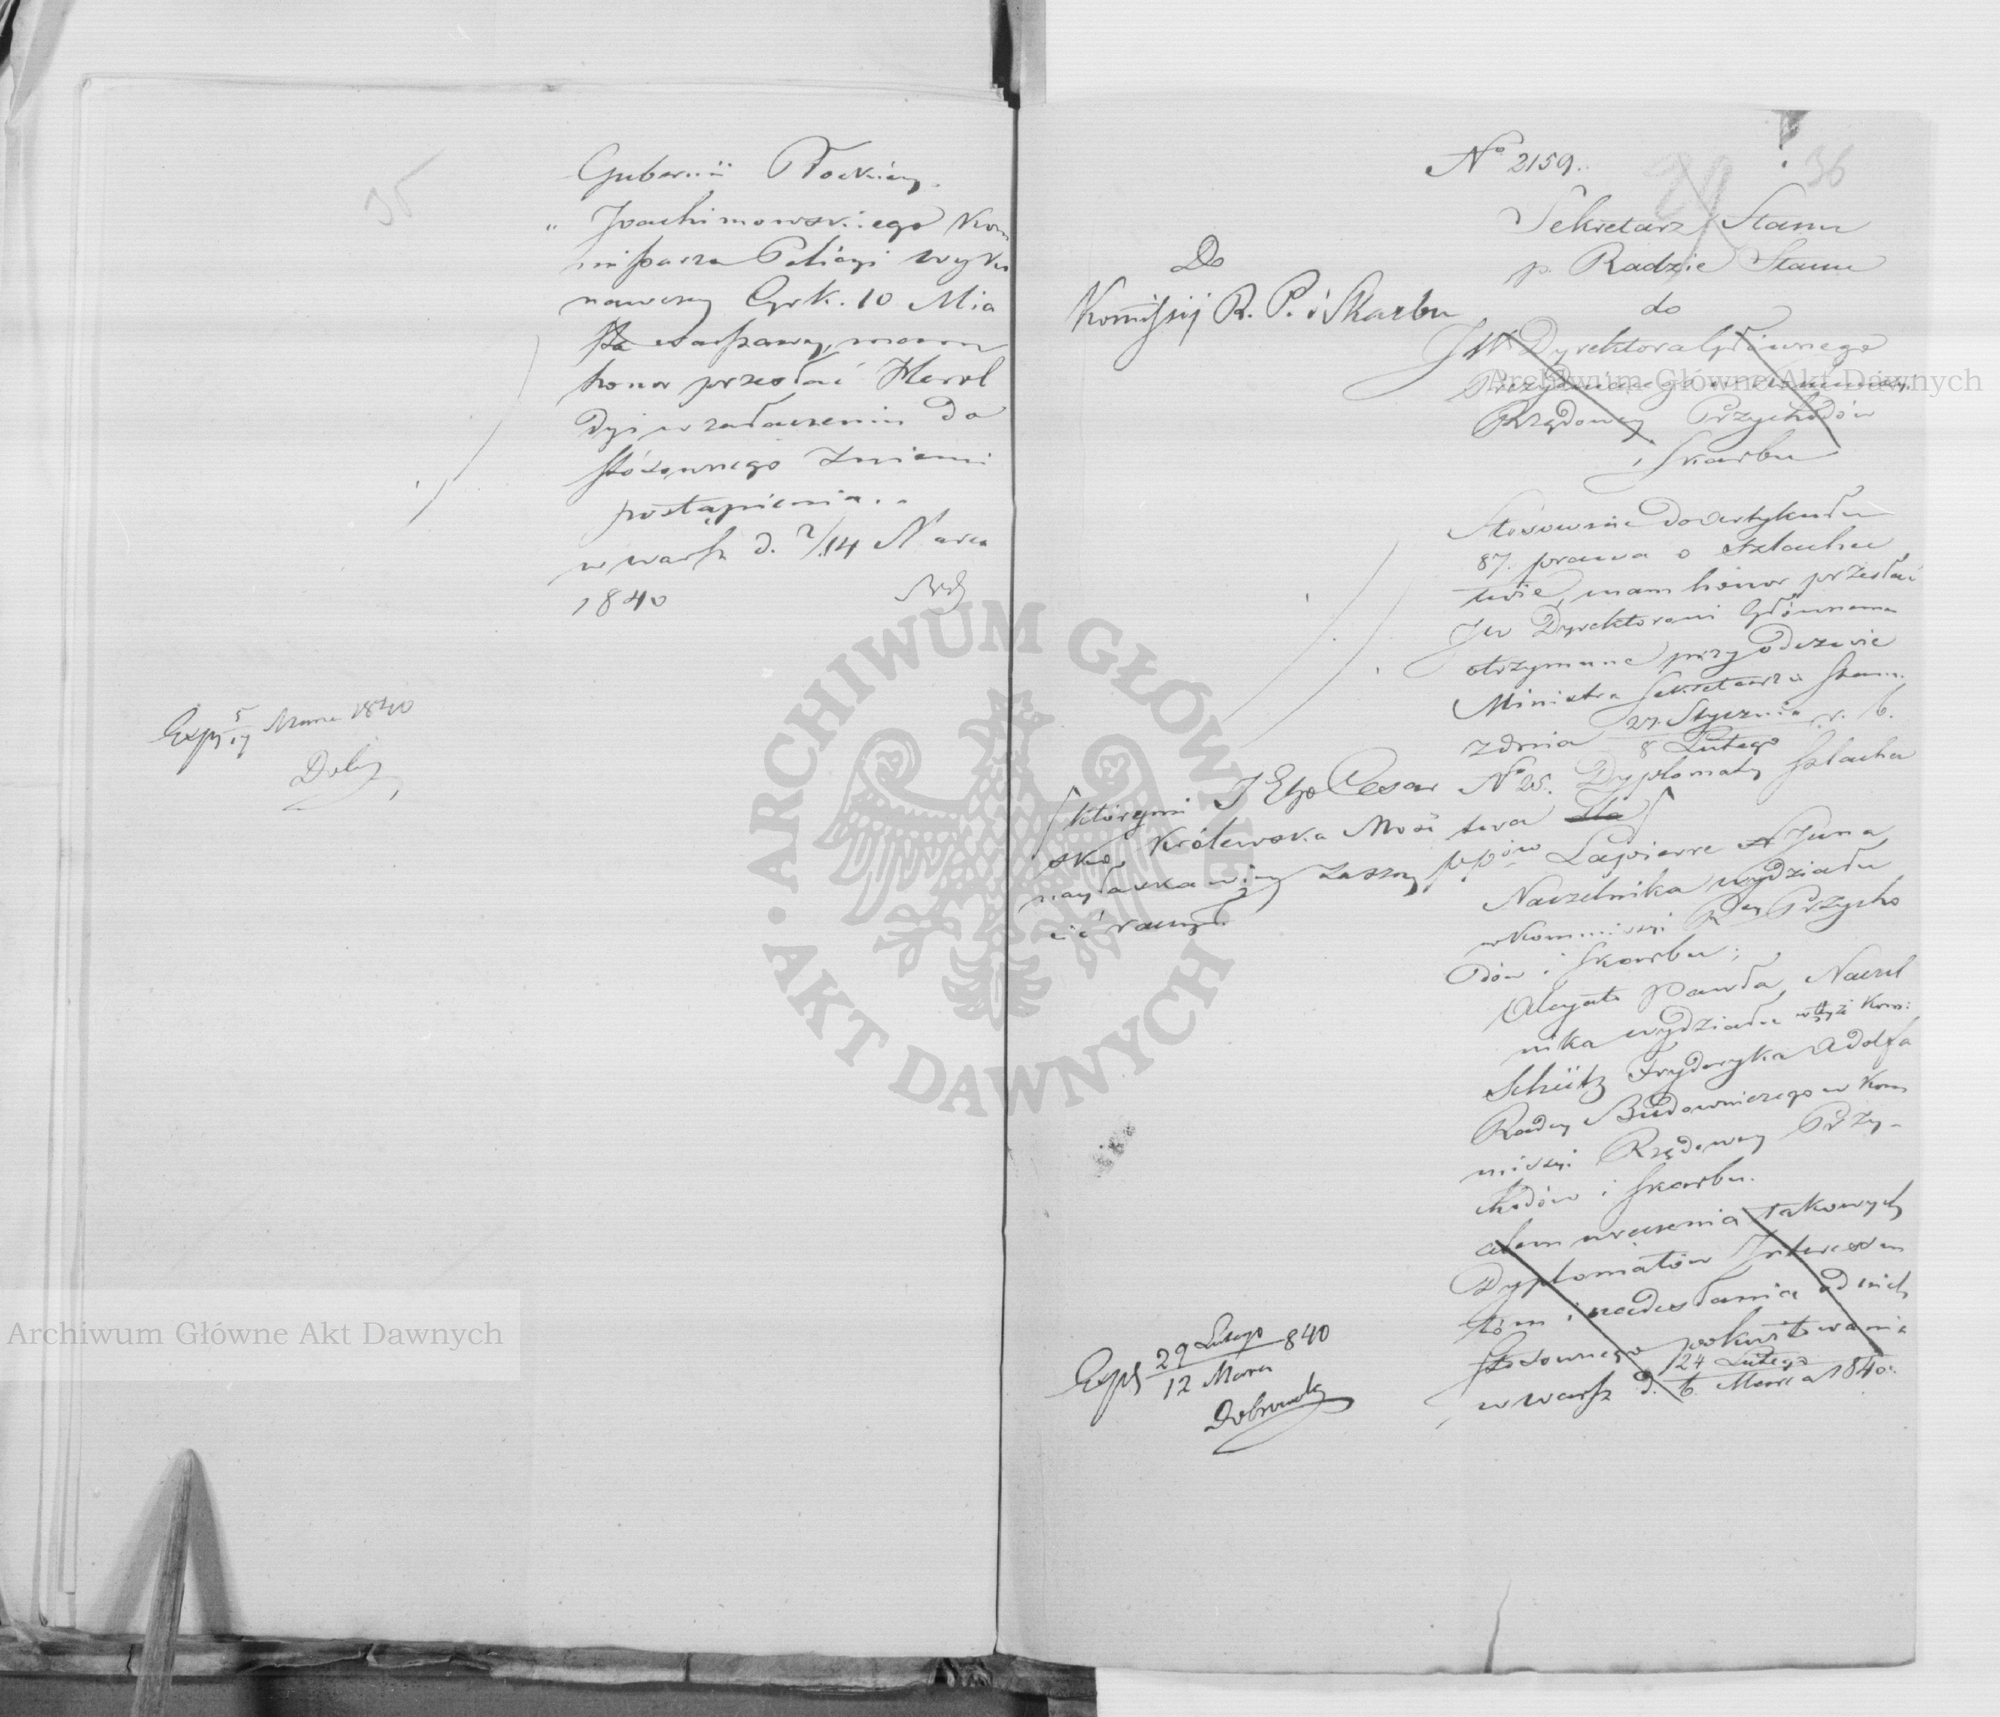 35
Gubernii Płockiey
„ Joachimowskiego Kom
missarza Policyi wyko
nawczey Cyrk. 10 Mia
sta Warszawy, mam
honor przesłać Herol
dyi w załączeniu do
stósownego zniemi
postąpienia..
w Warsz d. 2/14 Marca
1840
Exp 5/17 Marca 1840
No 2159.
36
Sekretarz Stanu
p. Radzie Stanu
do
JW Dyrektora Głównego
Prezydującego w Kommissyi
Rządowey Przychodów
i Skarbu
Do
Komissyi R. P. i Skarbu
Stósownie do artykułu
87. prawa o szlachec
twie, mam honor przesłać
JW Dyrektorowi Głównemu
otrzymane przy odezwie
Ministra Sekretarza Stanu
z dnia 27 Stycznia / 8 Lutego r. b.
No 25. Dyplomaty szlachec
twa dla
którymi J Ego Cesar
sko Królewska Mość
nayłaskawiey zaszczy
cić raczył
PPów Lapierre Juna
Naczelnika wydziału
w Kommissyi R ey Przycho
dów i Skarbu;
Alexato Pawła Naczel
nika wydziału w tyże Kom:
Schütz Fryderyka Adolfa
Radcy Budowniczego w Kom
missyi Rządowey Przy-
chodów i Skarbu.
celem wręczenia takowych
Dyplomatów Interessen
tóm i nadesłania od nich
stosownego pokwitowania
w Warsz d. 24 Lutego / 6. Marca 1840.
Exp 29 Lutego / 12 Marca 840
ARCHIWUM GŁÓWNE AKT DAWNYCH
Archiwum Główne Akt Dawnych
Archiwum Główne Akt Dawnych